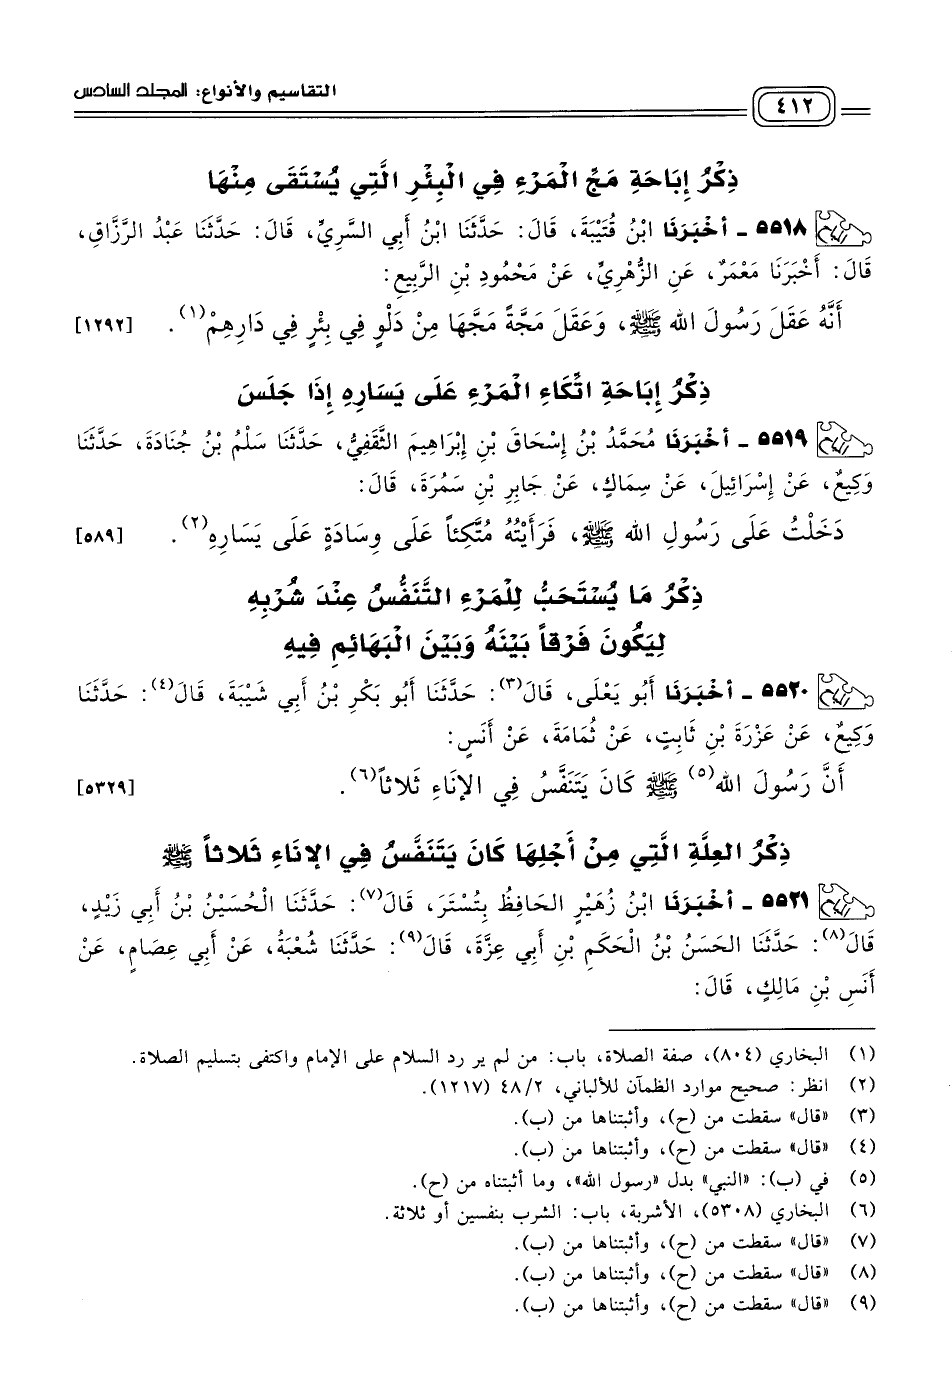 ٤١٢
التقاسيم والأنواع: المجلد السادس
ذِكْرُ إِبَاحَةِ مَجِّ الْمَرْءِ فِي الْبِئْرِ الَّتِي يُسْتَقَى مِنْهَا
٥٥١٨ ـ أَخْبَرَنَا ابْنُ قُتَيْبَةَ، قَالَ: حَدَّثَنَا ابْنُ أَبِي السَّرِيِّ، قَالَ: حَدَّثَنَا عَبْدُ الرَّزَّاقِ،
قَالَ: أَخْبَرَنَا مَعْمَرٌ، عَنِ الزُّهْرِيِّ، عَنْ مَحْمُودِ بْنِ الرَّبِيعِ:
أَنَّهُ عَقَلَ رَسُولَ الله ﷺ، وَعَقَلَ مَجَّةً مَجَّهَا مِنْ دَلْوٍ فِي بِئْرٍ فِي دَارِهِمْ(١). [١٢٩٢]
ذِكْرُ إِبَاحَةِ اتِّكَاءِ الْمَرْءِ عَلَى يَسَارِهِ إِذَا جَلَسَ
٥٥١٩ ـ أَخْبَرَنَا مُحَمَّدُ بْنُ إِسْحَاقَ بْنِ إِبْرَاهِيمَ الثَّقَفِيُّ، حَدَّثَنَا سَلْمُ بْنُ جُنَادَةَ، حَدَّثَنَا
وَكِيعٌ، عَنْ إِسْرَائِيلَ، عَنْ سِمَاكٍ، عَنْ جَابِرِ بْنِ سَمُرَةَ، قَالَ:
دَخَلْتُ عَلَى رَسُولِ الله ﷺ، فَرَأَيْتُهُ مُتَّكِئاً عَلَى وِسَادَةٍ عَلَى يَسَارِهِ(٢). [٥٨٩]
ذِكْرُ مَا يُسْتَحَبُّ لِلْمَرْءِ التَّنَفُّسُ عِنْدَ شُرْبِهِ
لِيَكُونَ فَرْقاً بَيْنَهُ وَبَيْنَ الْبَهَائِمِ فِيهِ
٥٥٢٠ ـ أَخْبَرَنَا أَبُو يَعْلَى، قَالَ(٣): حَدَّثَنَا أَبُو بَكْرِ بْنُ أَبِي شَيْبَةَ، قَالَ(٤): حَدَّثَنَا
وَكِيعٌ، عَنْ عَزْرَةَ بْنِ ثَابِتٍ، عَنْ ثُمَامَةَ، عَنْ أَنَسٍ:
أَنَّ رَسُولَ الله(٥) ﷺ كَانَ يَتَنَفَّسُ فِي الإِنَاءِ ثَلَاثاً(٦). [٥٣٢٩]
ذِكْرُ العِلَّةِ الَّتِي مِنْ أَجْلِهَا كَانَ يَتَنَفَّسُ فِي الإِنَاءِ ثَلَاثاً ﷺ
٥٥٢١ ـ أَخْبَرَنَا ابْنُ زُهَيْرٍ الحَافِظُ بِتُسْتَرَ، قَالَ(٧): حَدَّثَنَا الْحُسَيْنُ بْنُ أَبِي زَيْدٍ،
قَالَ(٨): حَدَّثَنَا الحَسَنُ بْنُ الْحَكَمِ بْنِ أَبِي عِزَّةَ، قَالَ(٩): حَدَّثَنَا شُعْبَةُ، عَنْ أَبِي عِصَامٍ، عَنْ
أَنَسِ بْنِ مَالِكٍ، قَالَ:
(١) البخاري (٨٠٤)، صفة الصلاة، باب: من لم ير رد السلام على الإمام واكتفى بتسليم الصلاة.
(٢) انظر: صحيح موارد الظمآن للألباني، ٤٨/٢ (١٢١٧).
(٣) «قال» سقطت من (ح)، وأثبتناها من (ب).
(٤) «قال» سقطت من (ح)، وأثبتناها من (ب).
(٥) في (ب): «النبي» بدل «رسول الله»، وما أثبتناه من (ح).
(٦) البخاري (٥٣٠٨)، الأشربة، باب: الشرب بنفسين أو ثلاثة.
(٧) «قال» سقطت من (ح)، وأثبتناها من (ب).
(٨) «قال» سقطت من (ح)، وأثبتناها من (ب).
(٩) «قال» سقطت من (ح)، وأثبتناها من (ب).